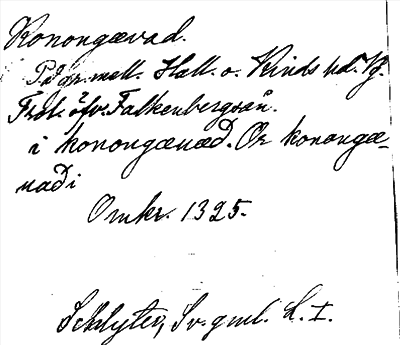 Konongævad.
På gr. mell. Hall. o. Kinds hd. Vg.
Trol. öfv. Falkenbergsån.
i konongæuæð. Or konongæ-
uaði
Omkr. 1325.
Schlyter, Sv. gml. L. I.